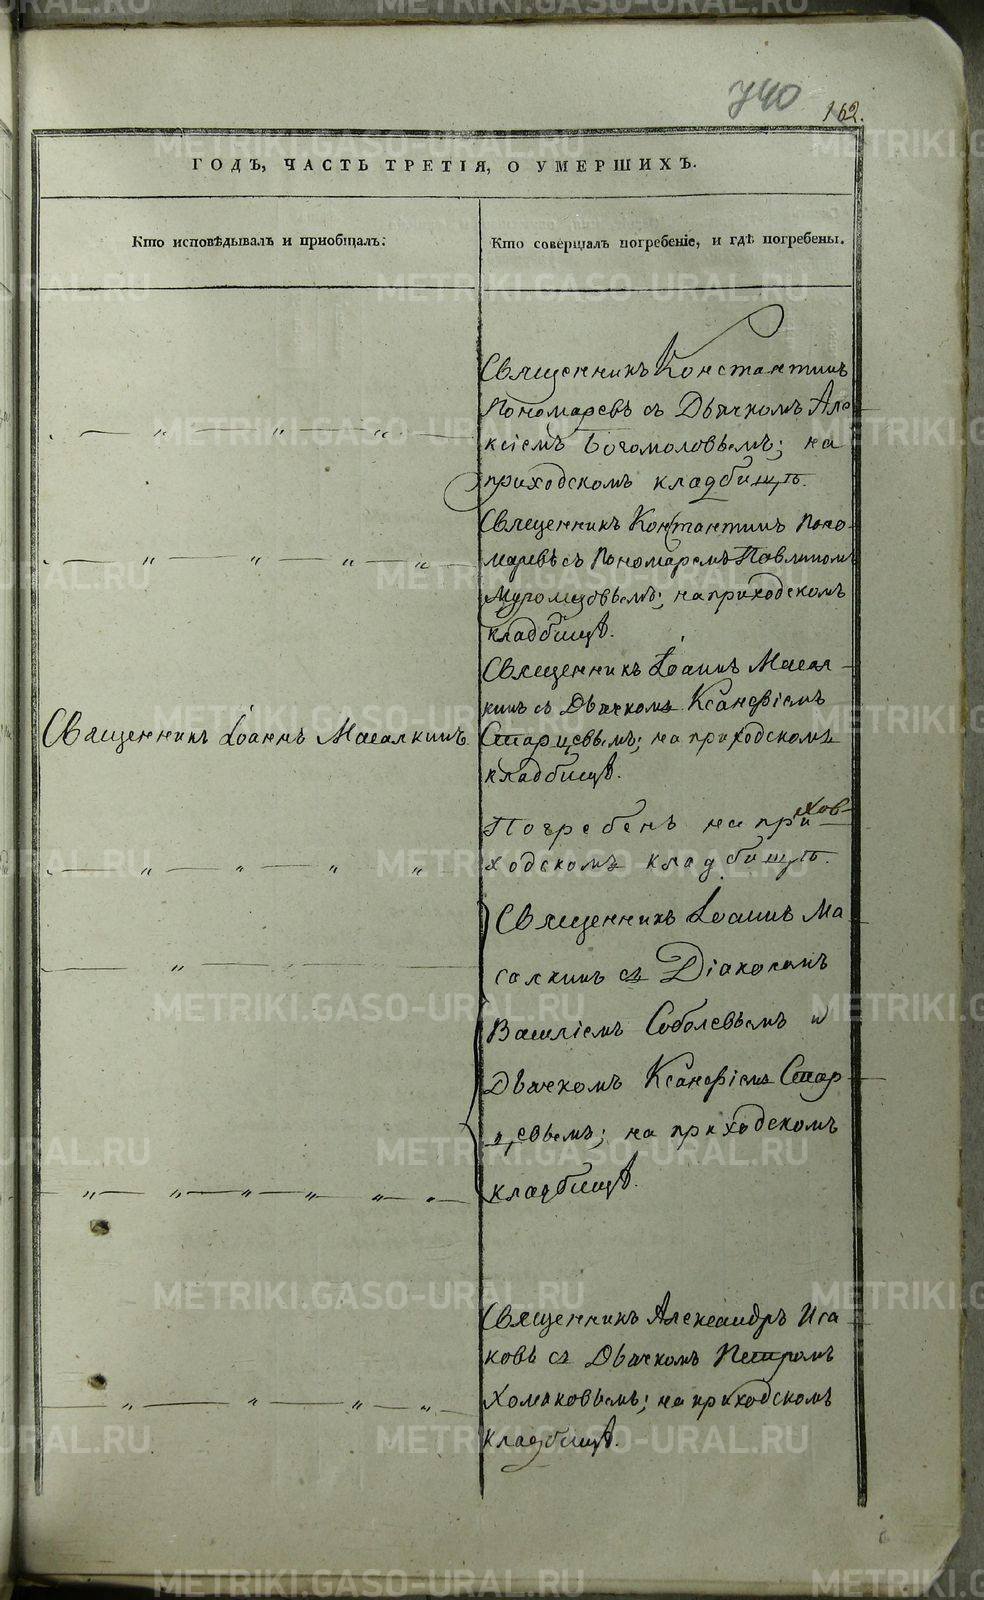 740
162.
ГОДЪ, ЧАСТЬ ТРЕТІЯ, О УМЕРШИХЪ.
Кто исповѣдывалъ и пріобщалъ:
Кто совершалъ погребеніе, и гдѣ погребены.
Священникъ Константинъ
Пономаревъ съ Дьячкомъ Але
ксіемъ Богомоловымъ; на
приходскомъ кладбищѣ.
Священникъ Константинъ Поно-
маревъ съ Пономаремъ Павлиномъ
Муромцовымъ; на приходскомъ
кладбищѣ.
Священникъ Іоаннъ Масал-
кинъ съ Дьячкомъ Ксанѳіемъ
Священникъ Іоаннъ Масалкинъ
Старцевымъ; на приходскомъ
кладбищѣ.
Погребенъ на при
ходскомъ кладбищѣ.
Священникъ Іоаннъ Ма
салкинъ съ Діакономъ
Василіемъ Соболевымъ и
Дьячкомъ Ксанѳіемъ Стар
цевымъ; на приходскомъ
кладбищѣ.
Священникъ Александръ Иса
ковъ съ Дьячкомъ Петромъ
Хомяковымъ; на приходскомъ
кладбищѣ.
METRIKI.GASO-URAL.RU